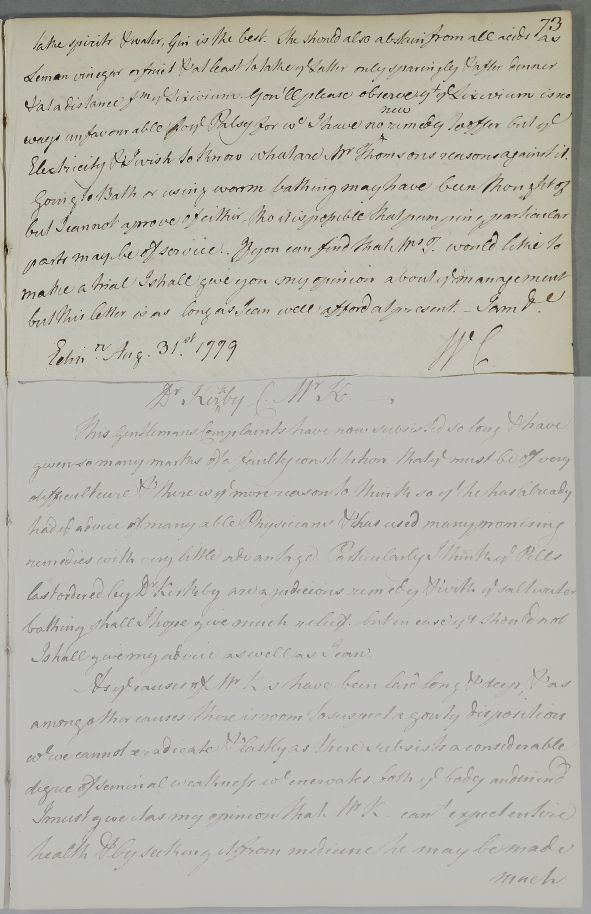 73
take spirits & water, Gin is the best. She should also abstain from all acids as
Lemon vinegar or fruit & at least to take ye latter only sparingly & after dinner
& at a distance fm ye Lixivium. You'll please observe yt ye Lixivium is no
ways unfavourable for ye Palsy for wc I have no new remedy to offer but ye
Electricity & I wish to know what are Mr Thomsons reasons against it.
Going to Bath or using warm bathing may have been thought of
but I cannot aprove of either, tho it is possible that pumping particular
parts may be of service. If you can find that Mrs would like to
make a trial I shall give you my opinion about ye management
but this letter is as long as I can well afford at present. I am &c
Edinr Aug. 31st 1779 Wm C.
Dr Kirkby C. Mr K.
This Gentlemans Complaints have now subsisted so long & have
given so many marks of a faulty constitution that ye must be of very
difficult cure & there is ye more reason to think so yt he has already
had ye advice of many able Physicians & has used many promising
remedies with very little advantage. Particularly I think ye Pills
last ordered by Dr Kirkby are a judicious remedy & with ye salt water
bathing shall I hope give much relief. but in case yt should not
I shall give my advice as well as I can.
As ye causes of Mr K.s have been laid long & deep, & as
among other causes there is room to suspect a gouty disposition
wc we cannot eradicate & lastly as there subsists a considerable
degree of seminal weakness wc enervates both ye body and mind
I must give it as my opinion that Mr K. cant expect entire
health & by seeking it from medicine he may be made
much